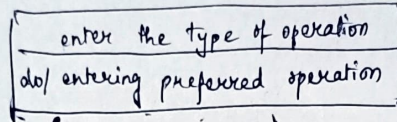 enter the type of operation
do/ entering preferred operation